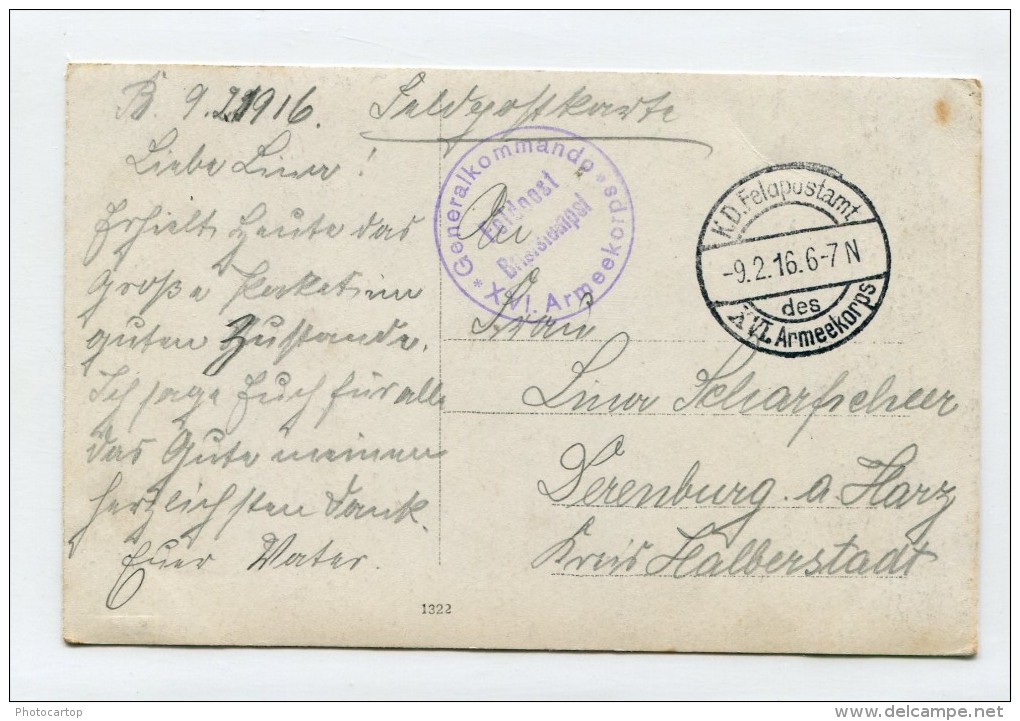 B. 9.2.1916.
Feldpostkarte
Liebe Lina!
Erhielt heute das
große Paket im
guten Zustande.
Ich sage Euch für alle
das Gute meinen
herzlichsten Dank.
Euer Vater.
An
Frau
Lina Scharfscheer
Derenburg a. Harz
Kreis Halberstadt
* Generalkommando * XVI. Armeekorps
Feldpost
Briefstempel
K.D. Feldpostamt
-9.2.16. 6-7 N
des
XVI. Armeekorps
1322
Photocartop
delcampe.net